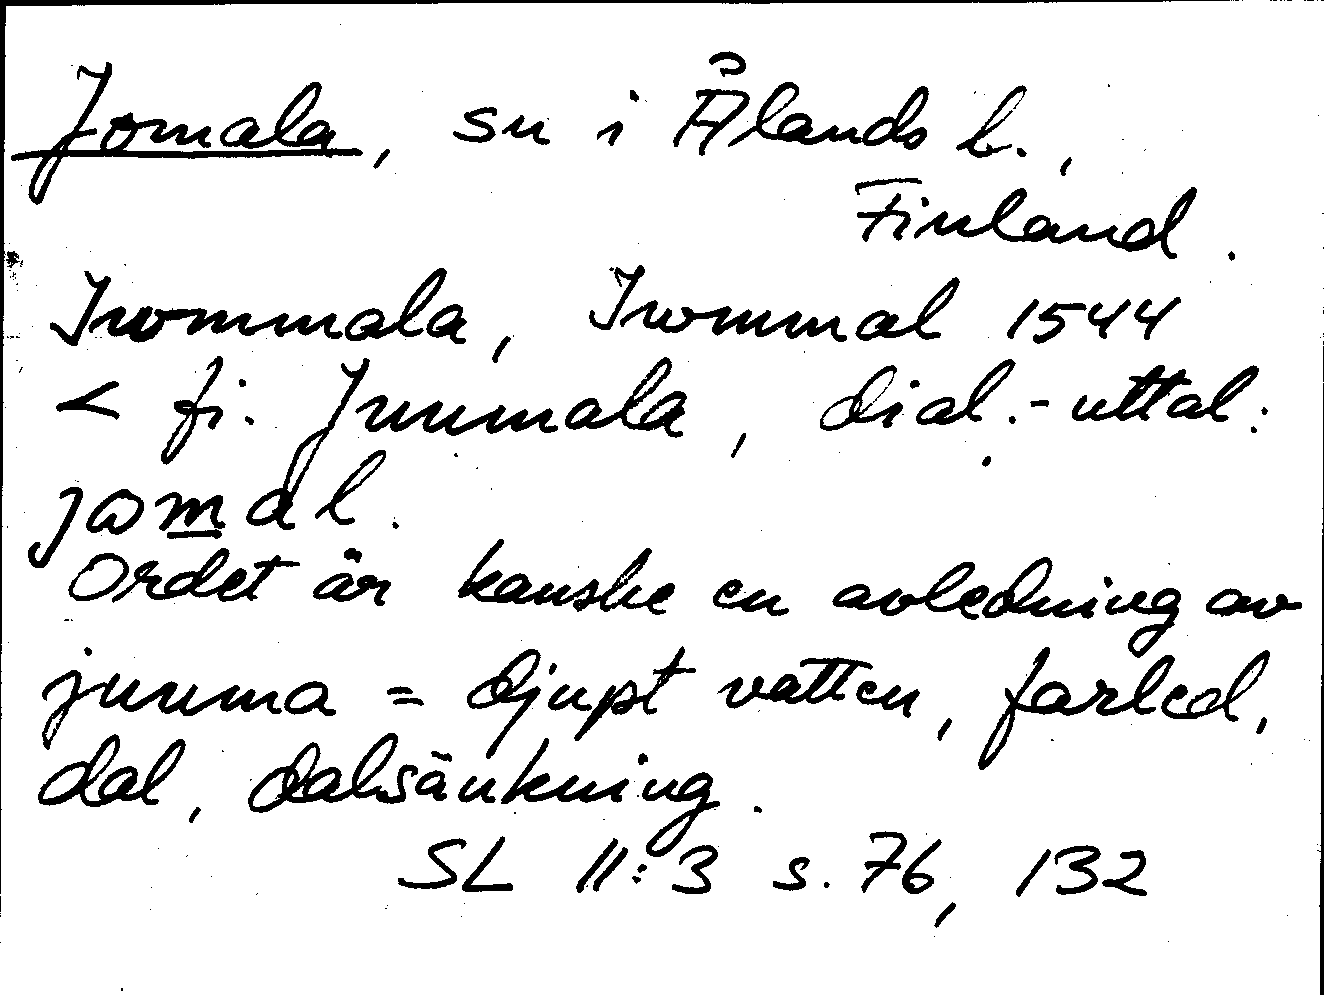 Jomala, sn i Ålands l.,
Finland.
Jwommala, Jwommal 1544
< fi. Juumala, dial.-uttal:
jomal.
Ordet är kanske en avledning av
juuma = djupt vatten, farled,
dal, dalsänkning.
SL II:3 s. 76, 132